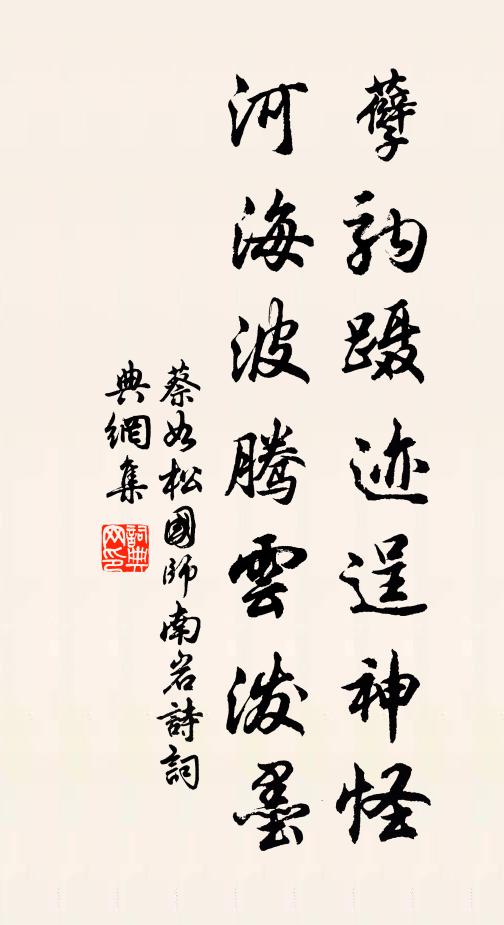 孽蹑迹逞神怪
河海波騰雲潑墨
蔡如松國師南岩詩詞
典網集
詞典
网印